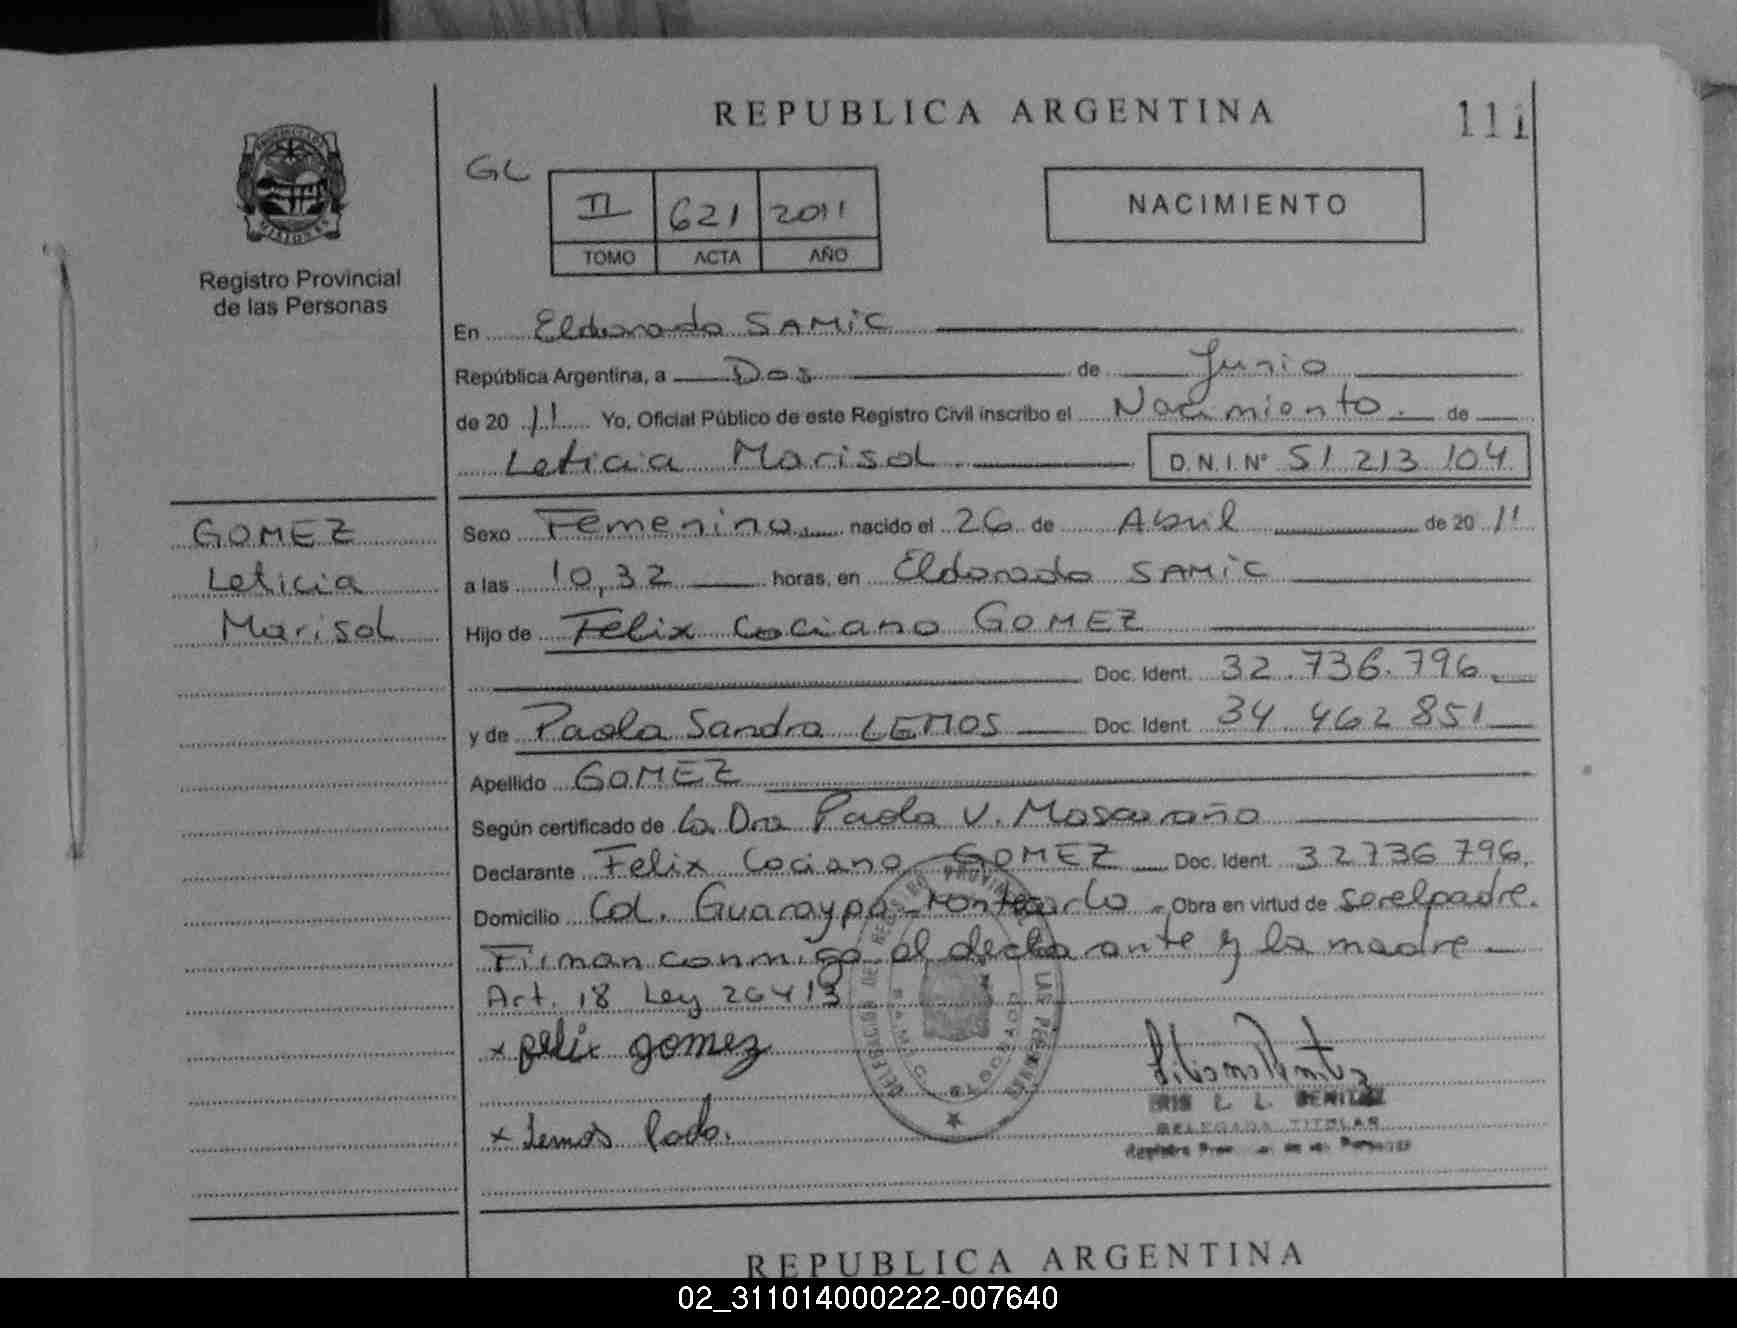 REPUBLICA ARGENTINA
111
PROVINCIA
MISIONES
Registro Provincial
de las Personas
GL
II 621 2011
TOMO ACTA AÑO
NACIMIENTO
En Eldorado SAMIC
República Argentina, a Dos de Junio
de 20 11 Yo, Oficial Público de este Registro Civil inscribo el Nacimiento. de
Leticia Marisol D.N.I.Nº 51 213 104
GOMEZ
Leticia
Marisol
Sexo Femenino nacido el 26 de Abril de 20 11
a las 10,32 horas, en Eldorado SAMIC
Hijo de Felix Cociano GOMEZ
Doc. Ident. 32.736.796
y de Paola Sandra LEMOS Doc. Ident. 34 462 851
Apellido GOMEZ
Según certificado de la Dra Paola V. Moscaraño
Declarante Felix Cociano GOMEZ Doc. Ident. 32736 796.
Domicilio Col. Guaraypo - Montecarlo - Obra en virtud de serelpadre.
Firman conmigo el declarante y la madre
Art. 18 Ley 26413
x felix gomez
x Lemos Paola.
DELEGACION DEL REGISTRO PROVINCIAL DE LAS PERSONAS
ELDORADO
IRIS L. L. BENITEZ
DELEGADA TITULAR
Registro Provincial de las Personas
REPUBLICA ARGENTINA
02_311014000222-007640